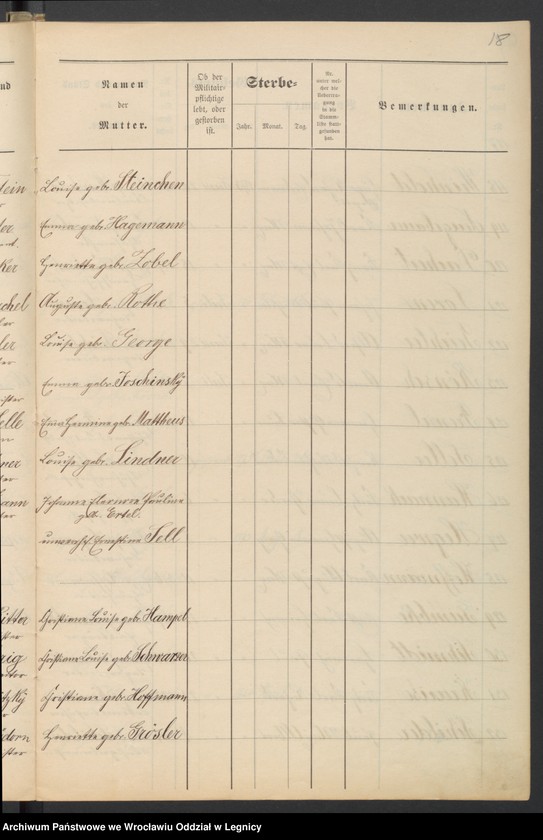 18
Namen
der
Mutter.
Ob der
Militair-
pflichtige
lebt, oder
gestorben
ist.
Sterbe-
Jahr. Monat. Tag.
Nr.
unter wel-
cher die
Uebertra-
gung
in die
Stamm-
liste statt-
gefunden
hat.
Bemerkungen.
Louise gebr. Steinchen
Emma geb Hagemann
Henriette gebr. Zobel
Auguste gebr. Rothe
Louise gebr. George
Emma gebr. Joschinsky
geb. Mattheus
Louise gebr. Lindner
Johanna Eleonora Pauline
geb. Ertel.
unverehl. Ernestine Sell
Christiane Louise gebr. Hampel
Christiane Louise geb. Schwarzer
Christiane gebr. Hoffmann
Henriette gebr. Grösler
Archiwum Państwowe we Wrocławiu Oddział w Legnicy